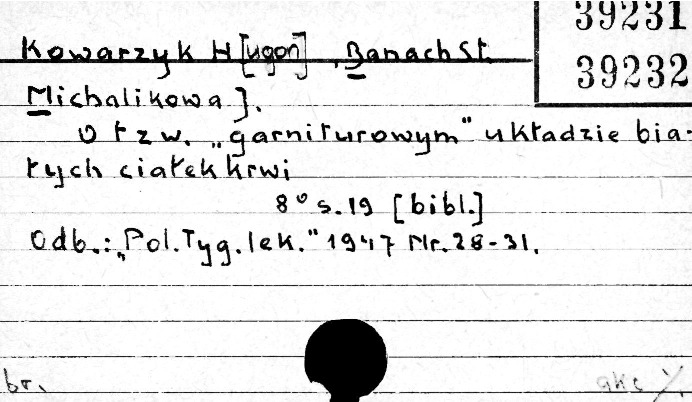 39231
39232
Kowarzyk H[ugon], Banach St.
Michalikowa J.
O t zw. „garniturowym" układzie bia-
łych ciałek krwi
8° s. 19 [bibl.]
Odb.: „Pol. Tyg. lek." 1947 Nr. 28-31.
br. akc